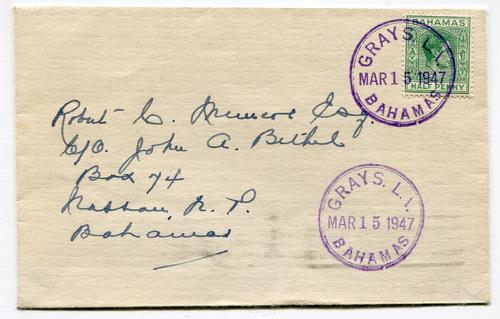 BAHAMAS
HALF PENNY
GRAYS. L. I.
MAR 15 1947
BAHAMAS
Robert C. Munroe Esq.
C/O. John A. Bethel
Box 74
Nassau, N. P.
Bahamas
GRAYS. L. I.
MAR 15 1947
BAHAMAS